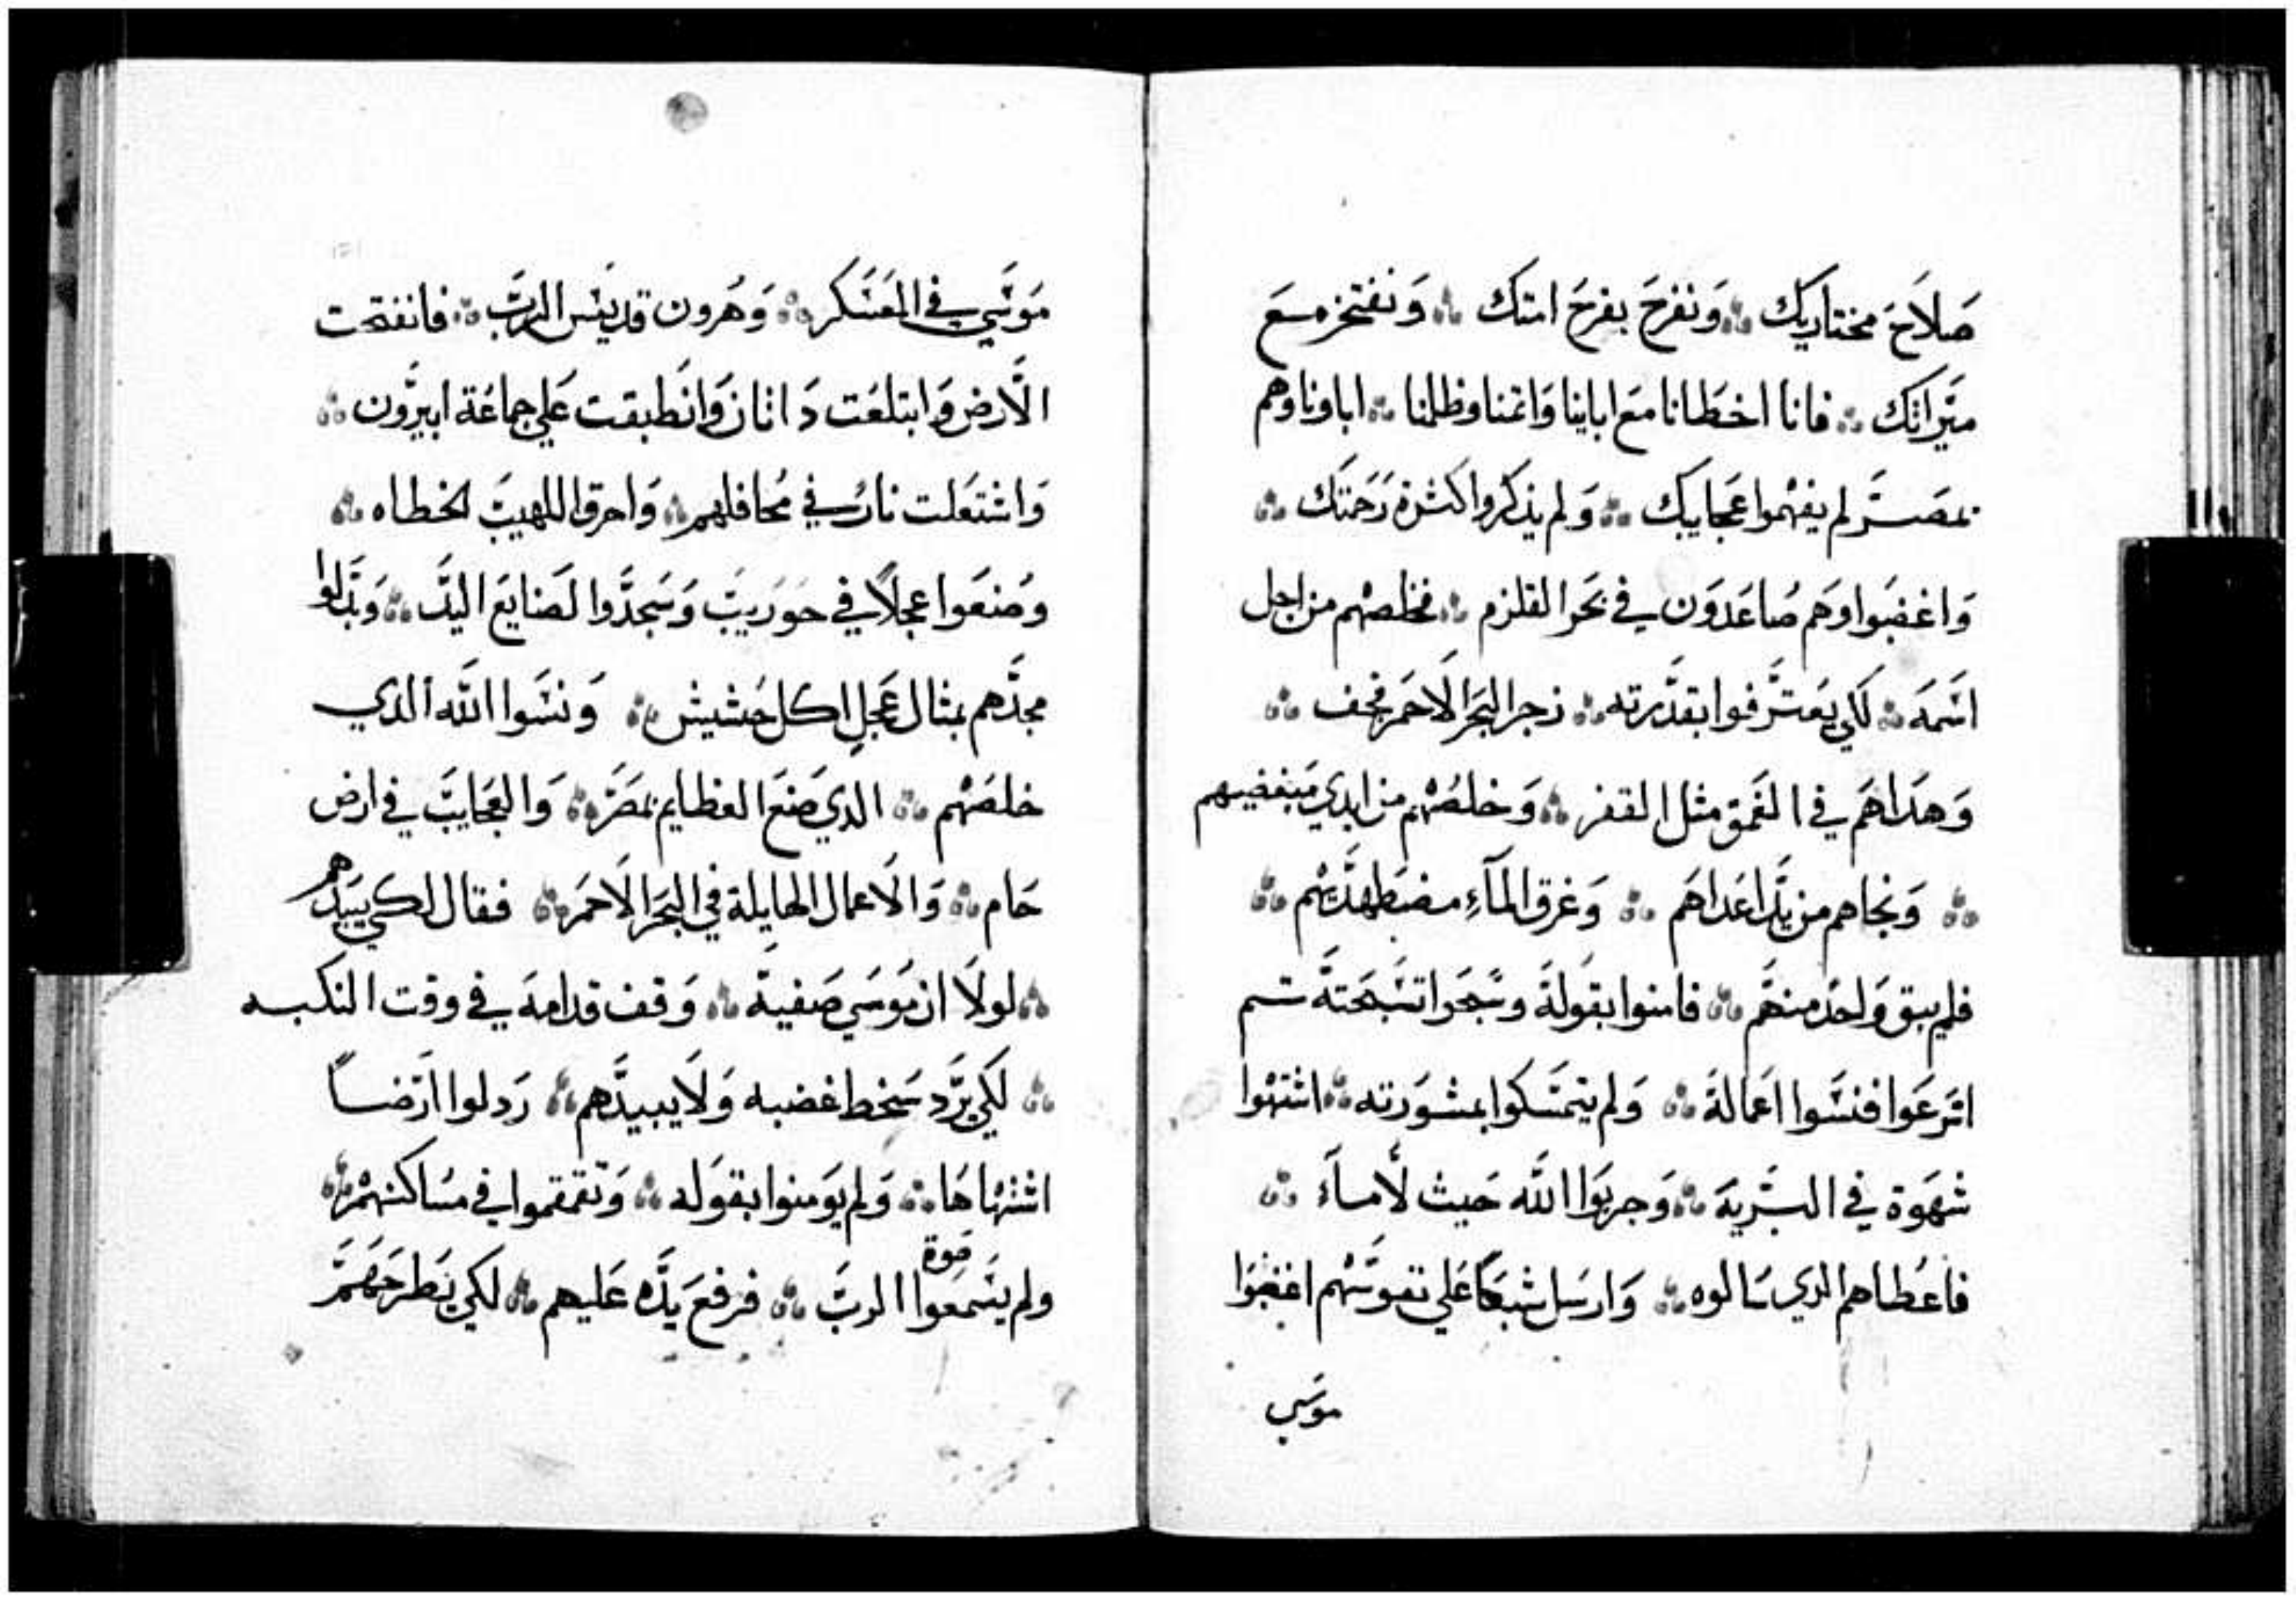 صَلاَحَ مختاريك ؞ وَنفرحَ بفرحَ امتك ؞ وَنفتخر مَعَ
ميَراثك ؞ فانا اخطَانا معَ اباينا وَاثمنا وظلمنا ؞ اباونا وهم
بمصَر لم يفهموا عَجايبك ؞ وَلم يذكروا كثرة رَحمتك ؞
وَاغضبَوا وَهم صَاعَدوَن في بحَر القلزم ؞ فخلصهم من اجل
اسَمهَ ؞ لكَي يعَترَفوا بقدَرته ؞ زجر البحَر الاحمَر فجف ؞
وَهدَاهمَ في العَمق مثل القفر ؞ وَخلصَهم من ايدي مَبغضيهم
؞ وَنجاهم من يدَ اعَداهمَ ؞ وَغرق المآءِ مضطَهدَيهم ؞
فلم يبق وَاحدَ منهمَ ؞ فامنوا بقوَلهَ وسَبحَوا تسَبحتهَ ثم
اسَرعَوا فنسَوا اعَمالهَ ؞ وَلم يتمسَكوا بمشوَرته ؞ اشتهَوا
شهَوة في البرَيهَ ؞ وَجربوَا اللَّه حَيث لاَ مآءَ ؞
فاعَطاهم الدي سَالوه ؞ وَارسَل شبعَاً عَلي نفوسَهم اغضبَوا
موسَي
موَسَي في المعَسَكر ؞ وَهَرون قديَس الربَّ ؞ فانفتحت
الاَرض وَابتلعَت دَاثان وَانطَبقت عَلي جماعَة ابيرَون ؞
وَاشتعَلت نارَ في محَافلهم ؞ وَاحرق اللهيبَ الخطاه ؞
وصَنعَوا عجلاً في حوَريبَ وَسَجدَوا لصَنايعَ اليدَ ؞ وَبدَلوا
مجدَهم بمثال عَجلٍ اكل حَشيش ؞ وَنسَوا اللَّه الدي
خلصَهم ؞ الدي صَنعَ العظايم بمصَر ؞ وَالعجَايبَ في ارض
حَام ؞ وَالاَعمال الهايلة في البحَر الاحمَر ؞ فقال لكي يبيدَهم
؞ لولاَ ان موَسَي صَفيهَ ؞ وَقف قدامهَ في وقت النكبه
؞ لكَي يرَد سَخط غضبه وَلاَ يبيدَهم ؞ رَدلوا ارَضاً
اشتهَاهَا ؞ وَلم يوَمنوا بقوَله ؞ وَتقمقموا في مسَاكنهم ؞
ولم يسَمعَوا صَوة الربَّ ؞ فرفعَ يدَه عَليهم ؞ لكي يَطرَحهَمَ